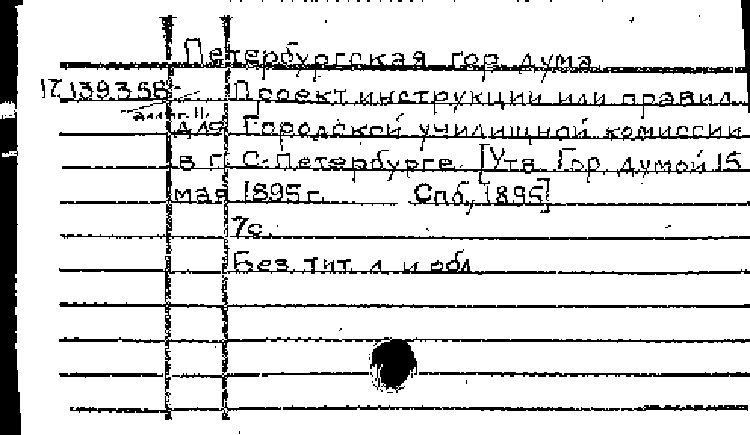 Петербургская гор. дума
17.139.3.58-
Проект инструкции или правил
аллиг. 11.
для Городской училищной комиссии
в г. С.-Петербурге. [Утв. Гор. думой 15
мая 1895 г. Спб, 1895]
7с.
Без тит. л. и обл.